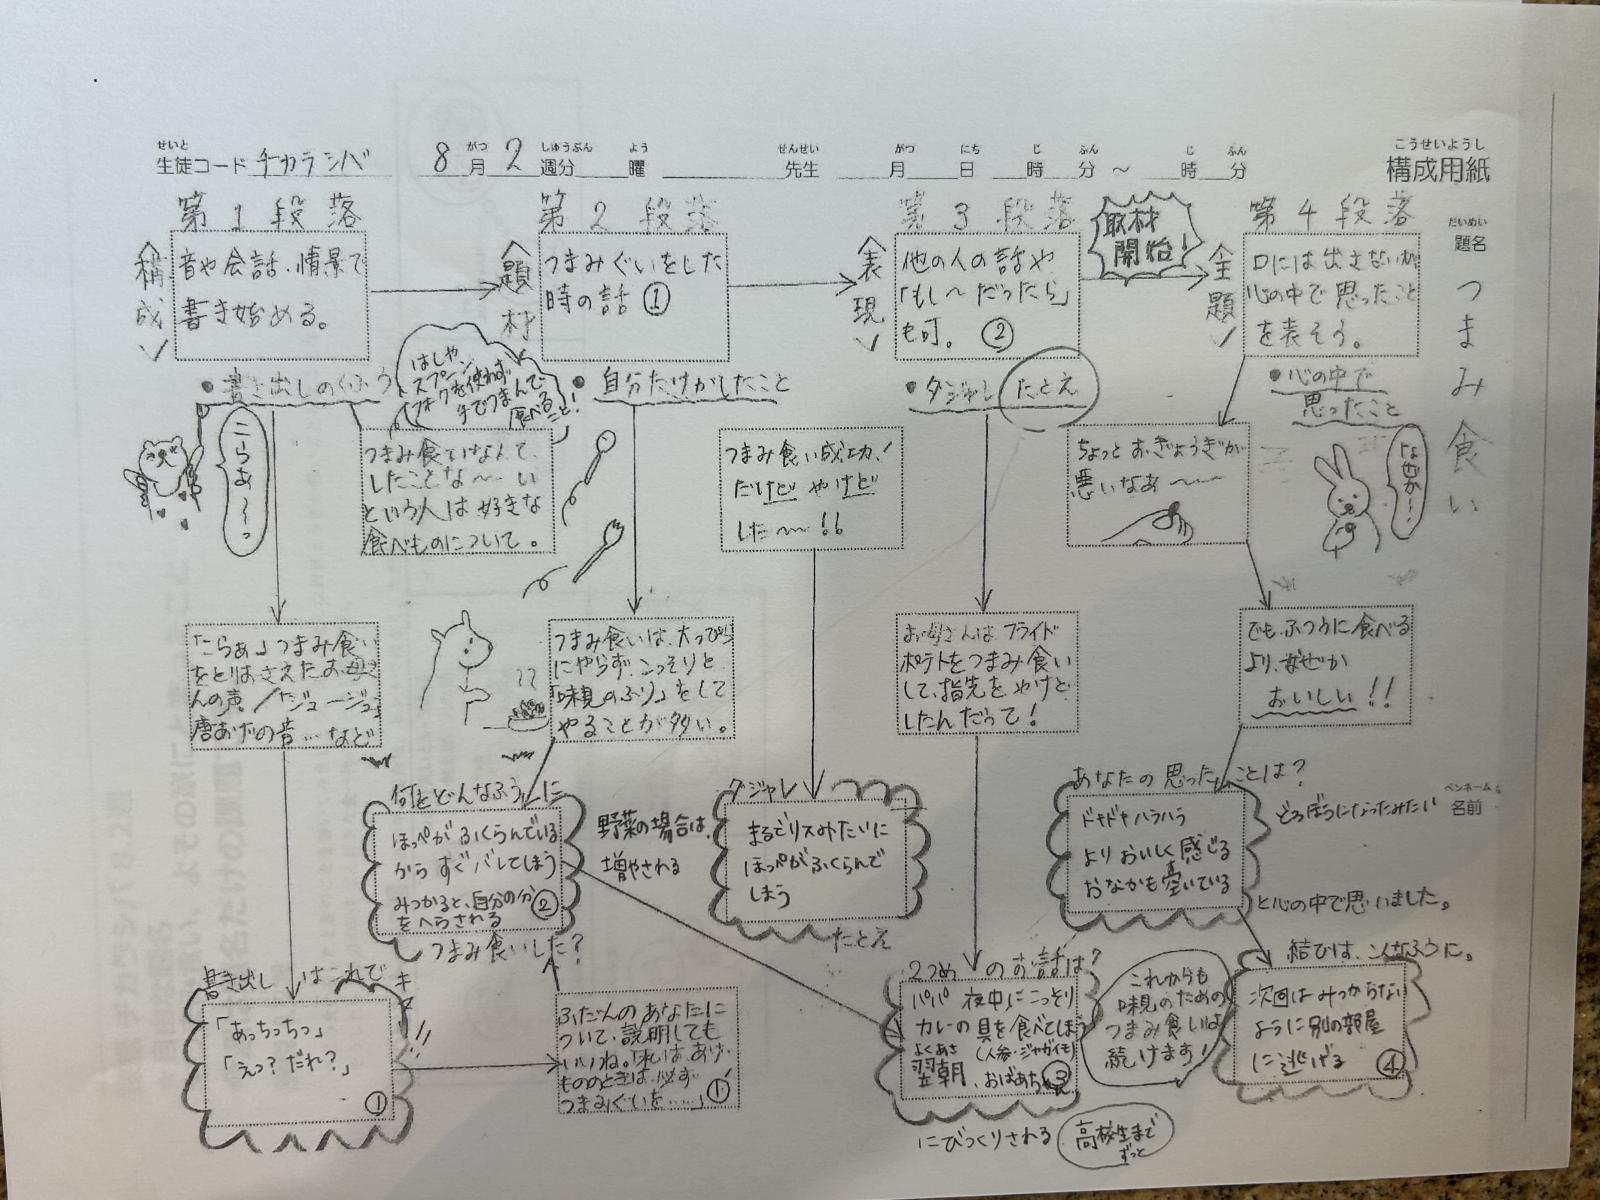 せいと
生徒コード チカラシバ
8月2週分 曜
がつ しゅうぶん よう
先生
せんせい
月 日 時 分 ～ 時 分
がつ にち じ ふん じ ふん
こうせいようし
構成用紙
だいめい
題名
つまみ食い
第1段落
構成
音や会話、情景で
書き始める。
第2段落
題材
つまみぐいをした
時の話 ①
第3段落
表現
他の人の話や
「もし～だったら」
も可。 ②
取材
開始!
第4段落
全題
口には出さないが
心の中で思ったこと
を表そう。
●書き出しのくふう
はしや、
スプーン、
フォークを使わず
手でつまんで
食べる
こと!
●自分だけがしたこと
●ダジャレ たとえ
●心の中で
思ったこと
こらぁ～～っ
つまみ食いなんて、
したことな～い
という人は好きな
食べものについて。
つまみ食い成功!
だけど やけど
した～!!
ちょっとおぎょうぎが
悪いなぁ～～
なぜか～～
「こらぁ」つまみ食い
をとりおさえたお母さ
んの声/「ジュージュー」
唐あげの音…など
つまみ食いは、大っぴら
にやらず、こっそりと
「味見のふり」をして
やることが多い。
お母さんは、フライド
ポテトをつまみ食い
して、指先をやけど
したんだって!
でも、ふつうに食べる
より、なぜか
おいしい!!
何をどんなふうに
ほっぺがふくらんでいる
からすぐバレてしまう
みつかると、自分の分
をへらされる ②
つまみ食いした?
野菜の場合は、
増やされる
ダジャレ
まるでリスみたいに
ほっぺがふくらんで
しまう
たとえ
あなたの思ったことは?
ドキドキハラハラ
よりおいしく感じる
おなかも空いている
どろぼうになったみたい
と心の中で思いました。
ペンネーム
名前
書き出しはこれで
キマリ!!
「あっちっちっ」
「えっ?だれ?」
①
ふだんのあなたに
ついて、説明しても
いいね。「私は、あげ
もののときは、必ず
つまみぐいを……」①'
2つめのお話は?
パパ 夜中にこっそり
カレーの具を食べてしまう
(人参・ジャガイモ)
よくあさ
翌朝、おばあちゃん ③
にびっくりされる
高校生まで
ずっと
これからも
味見のための
つまみ食いは
続けます!
結びは、こんなふうに。
次回はみつからない
ように別の部屋
に逃げる ④